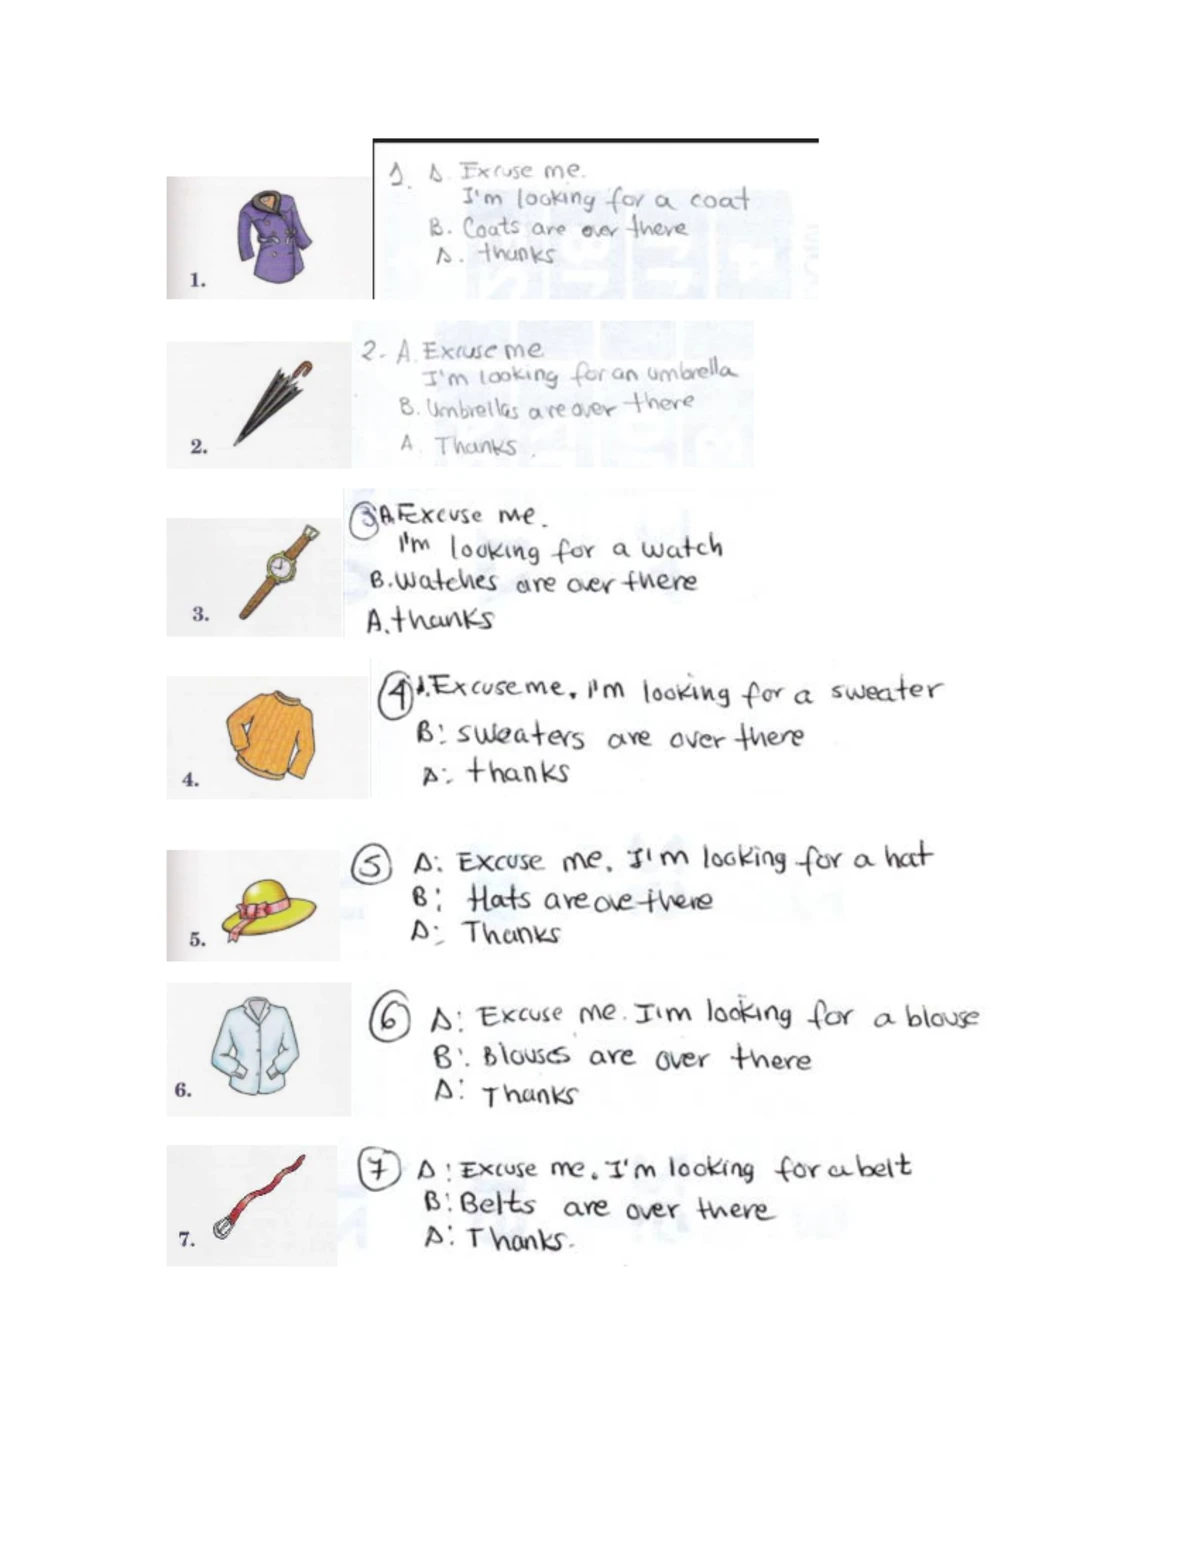 1. A. Excuse me.
I'm looking for a coat
B. Coats are over there
A. thanks
1.
2- A. Excuse me.
I'm looking for an umbrella
B. Umbrellas are over there
A. Thanks.
2.
3 A. Excuse me.
I'm looking for a watch
B. Watches are over there
A. thanks
3.
4 A. Excuse me. I'm looking for a sweater
B: sweaters are over there
A: thanks
4.
5 A: Excuse me. I'm looking for a hat
B: Hats are ove there
A: Thanks
5.
6 A: Excuse me. I'm looking for a blouse
B: Blouses are over there
A: Thanks
6.
7 A: Excuse me. I'm looking for a belt
B: Belts are over there
A: Thanks.
7.